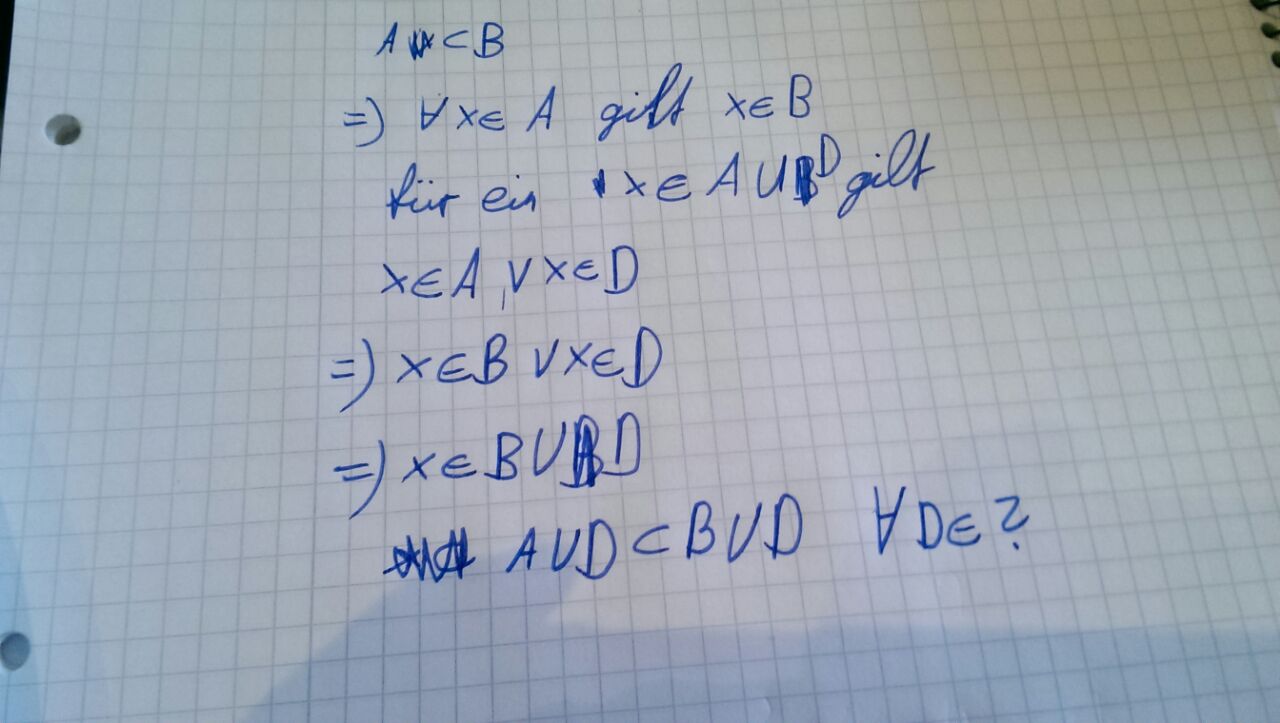 A ⊂ B
⇒) ∀ x ∈ A gilt x ∈ B
für ein x ∈ A ∪ D gilt
x ∈ A ∨ x ∈ D
⇒) x ∈ B ∨ x ∈ D
⇒) x ∈ B ∪ D
A ∪ D ⊂ B ∪ D ∀ D ∈ ?